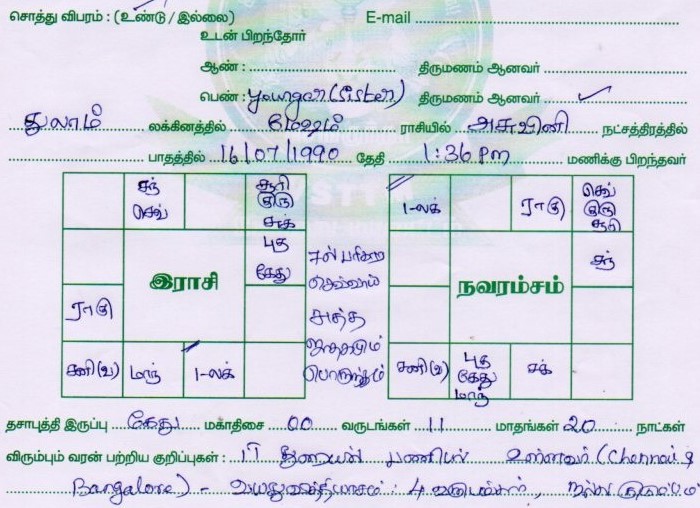 சொத்து விபரம் : (உண்டு / இல்லை) E-mail
உடன் பிறந்தோர்
ஆண் : திருமணம் ஆனவர்
பெண் : younger (Sister) திருமணம் ஆனவர் ✓
துலாம் லக்கினத்தில் மேஷம் ராசியில் அசுவினி நட்சத்திரத்தில்
பாதத்தில் 16/07/1990 தேதி 1:36 Pm மணிக்கு பிறந்தவர்
சந் செவ்
சூரி குரு சுக்
புத கேது
இராசி
ராகு
சனி(வ) மாந் 1-லக்
7ல் பரிகார
செவ்வாய்
சுத்த
ஜாதகமும்
பொருந்தும்
1-லக் ராகு
செவ் குரு சூரி
சந்
நவரம்சம்
சனி(வ)
புத கேது மாந்
சுக்
தசாபுத்தி இருப்பு கேது மகாதிசை 00 வருடங்கள் 11 மாதங்கள் 20 நாட்கள்
விரும்பும் வரன் பற்றிய குறிப்புகள் : IT துறையில் பணியில் உள்ளவர் (Chennai &
Bangalore) - வயது வித்தியாசம் : 4 வருடங்கள் , நல்ல குடும்பம்